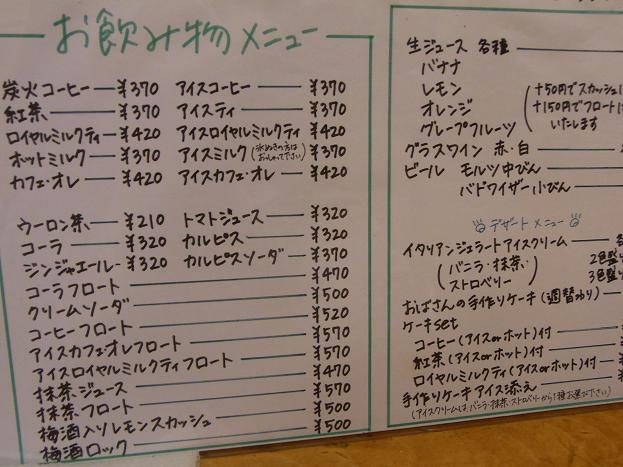 お飲み物メニュー
炭火コーヒー ¥370 アイスコーヒー ¥370
紅茶 ¥370 アイスティ ¥370
ロイヤルミルクティ ¥420 アイスロイヤルミルクティ ¥420
ホットミルク ¥370 アイスミルク(氷ぬきの方はおっしゃって下さい) ¥370
カフェ・オレ ¥420 アイスカフェ・オレ ¥420
ウーロン茶 ¥210 トマトジュース ¥320
コーラ ¥320 カルピス ¥320
ジンジャエール ¥320 カルピスソーダ ¥370
コーラフロート ¥470
クリームソーダ ¥500
コーヒーフロート ¥520
アイスカフェ・オレフロート ¥570
アイスロイヤルミルクティフロート ¥570
抹茶ジュース ¥470
抹茶フロート ¥570
梅酒入りレモンスカッシュ ¥500
梅酒ロック ¥500
生ジュース 各種
バナナ
レモン
オレンジ
グレープフルーツ
+50円でスカッシュに
+150円でフロートに
いたします
グラスワイン 赤・白
ビール モルツ中びん
バドワイザー小びん
デザートメニュー
イタリアンジェラートアイスクリーム
(バニラ・抹茶・
ストロベリー)
2色盛り
3色盛り
おばさんの手作りケーキ(週替わり)
ケーキset
コーヒー(アイスorホット)付
紅茶(アイスorホット)付
ロイヤルミルクティ(アイスorホット)付
手作りケーキアイス添え
(アイスクリームは、バニラ・抹茶・ストロベリーから1種お選び下さい)